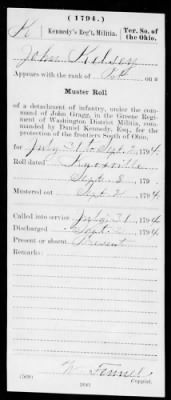 (1794.)
K | Kennedy's Reg't, Militia. | Ter. So. of the Ohio.
John Kelsey
Appears with the rank of Pvt. on a
Muster Roll
of a detachment of infantry, under the command of John Gragg, in the Greene Regiment of Washington District Militia, commanded by Daniel Kennedy, Esq., for the protection of the frontiers South of Ohio,
for July 31 to Sept. 2, 1794
Roll dated Knoxville
Sept. 2, 179
Mustered out Sept 2, 1794
Called into service July 31, 1794
Discharged Sept. 2, 1794
Present or absent Present
Remarks:
(569)
Copyist.